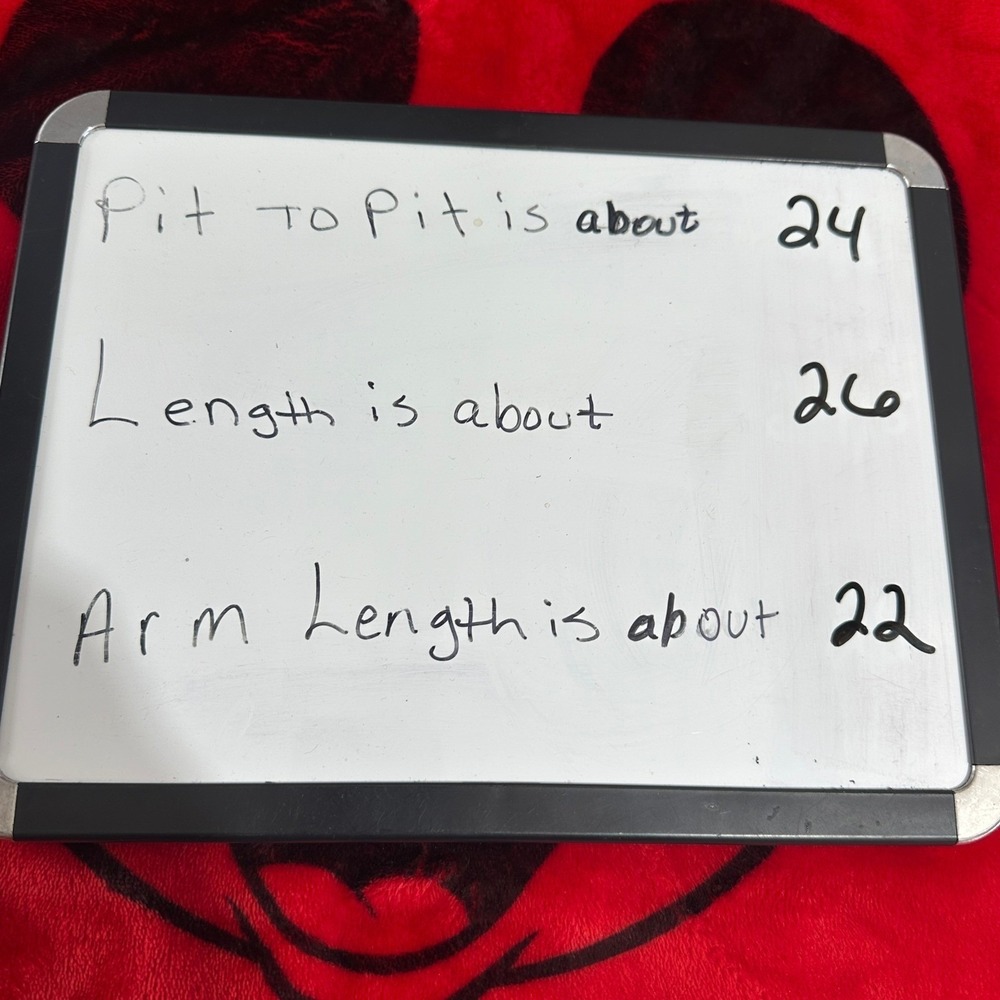 Pit To Pit is about 24
Length is about 26
Arm Length is about 22